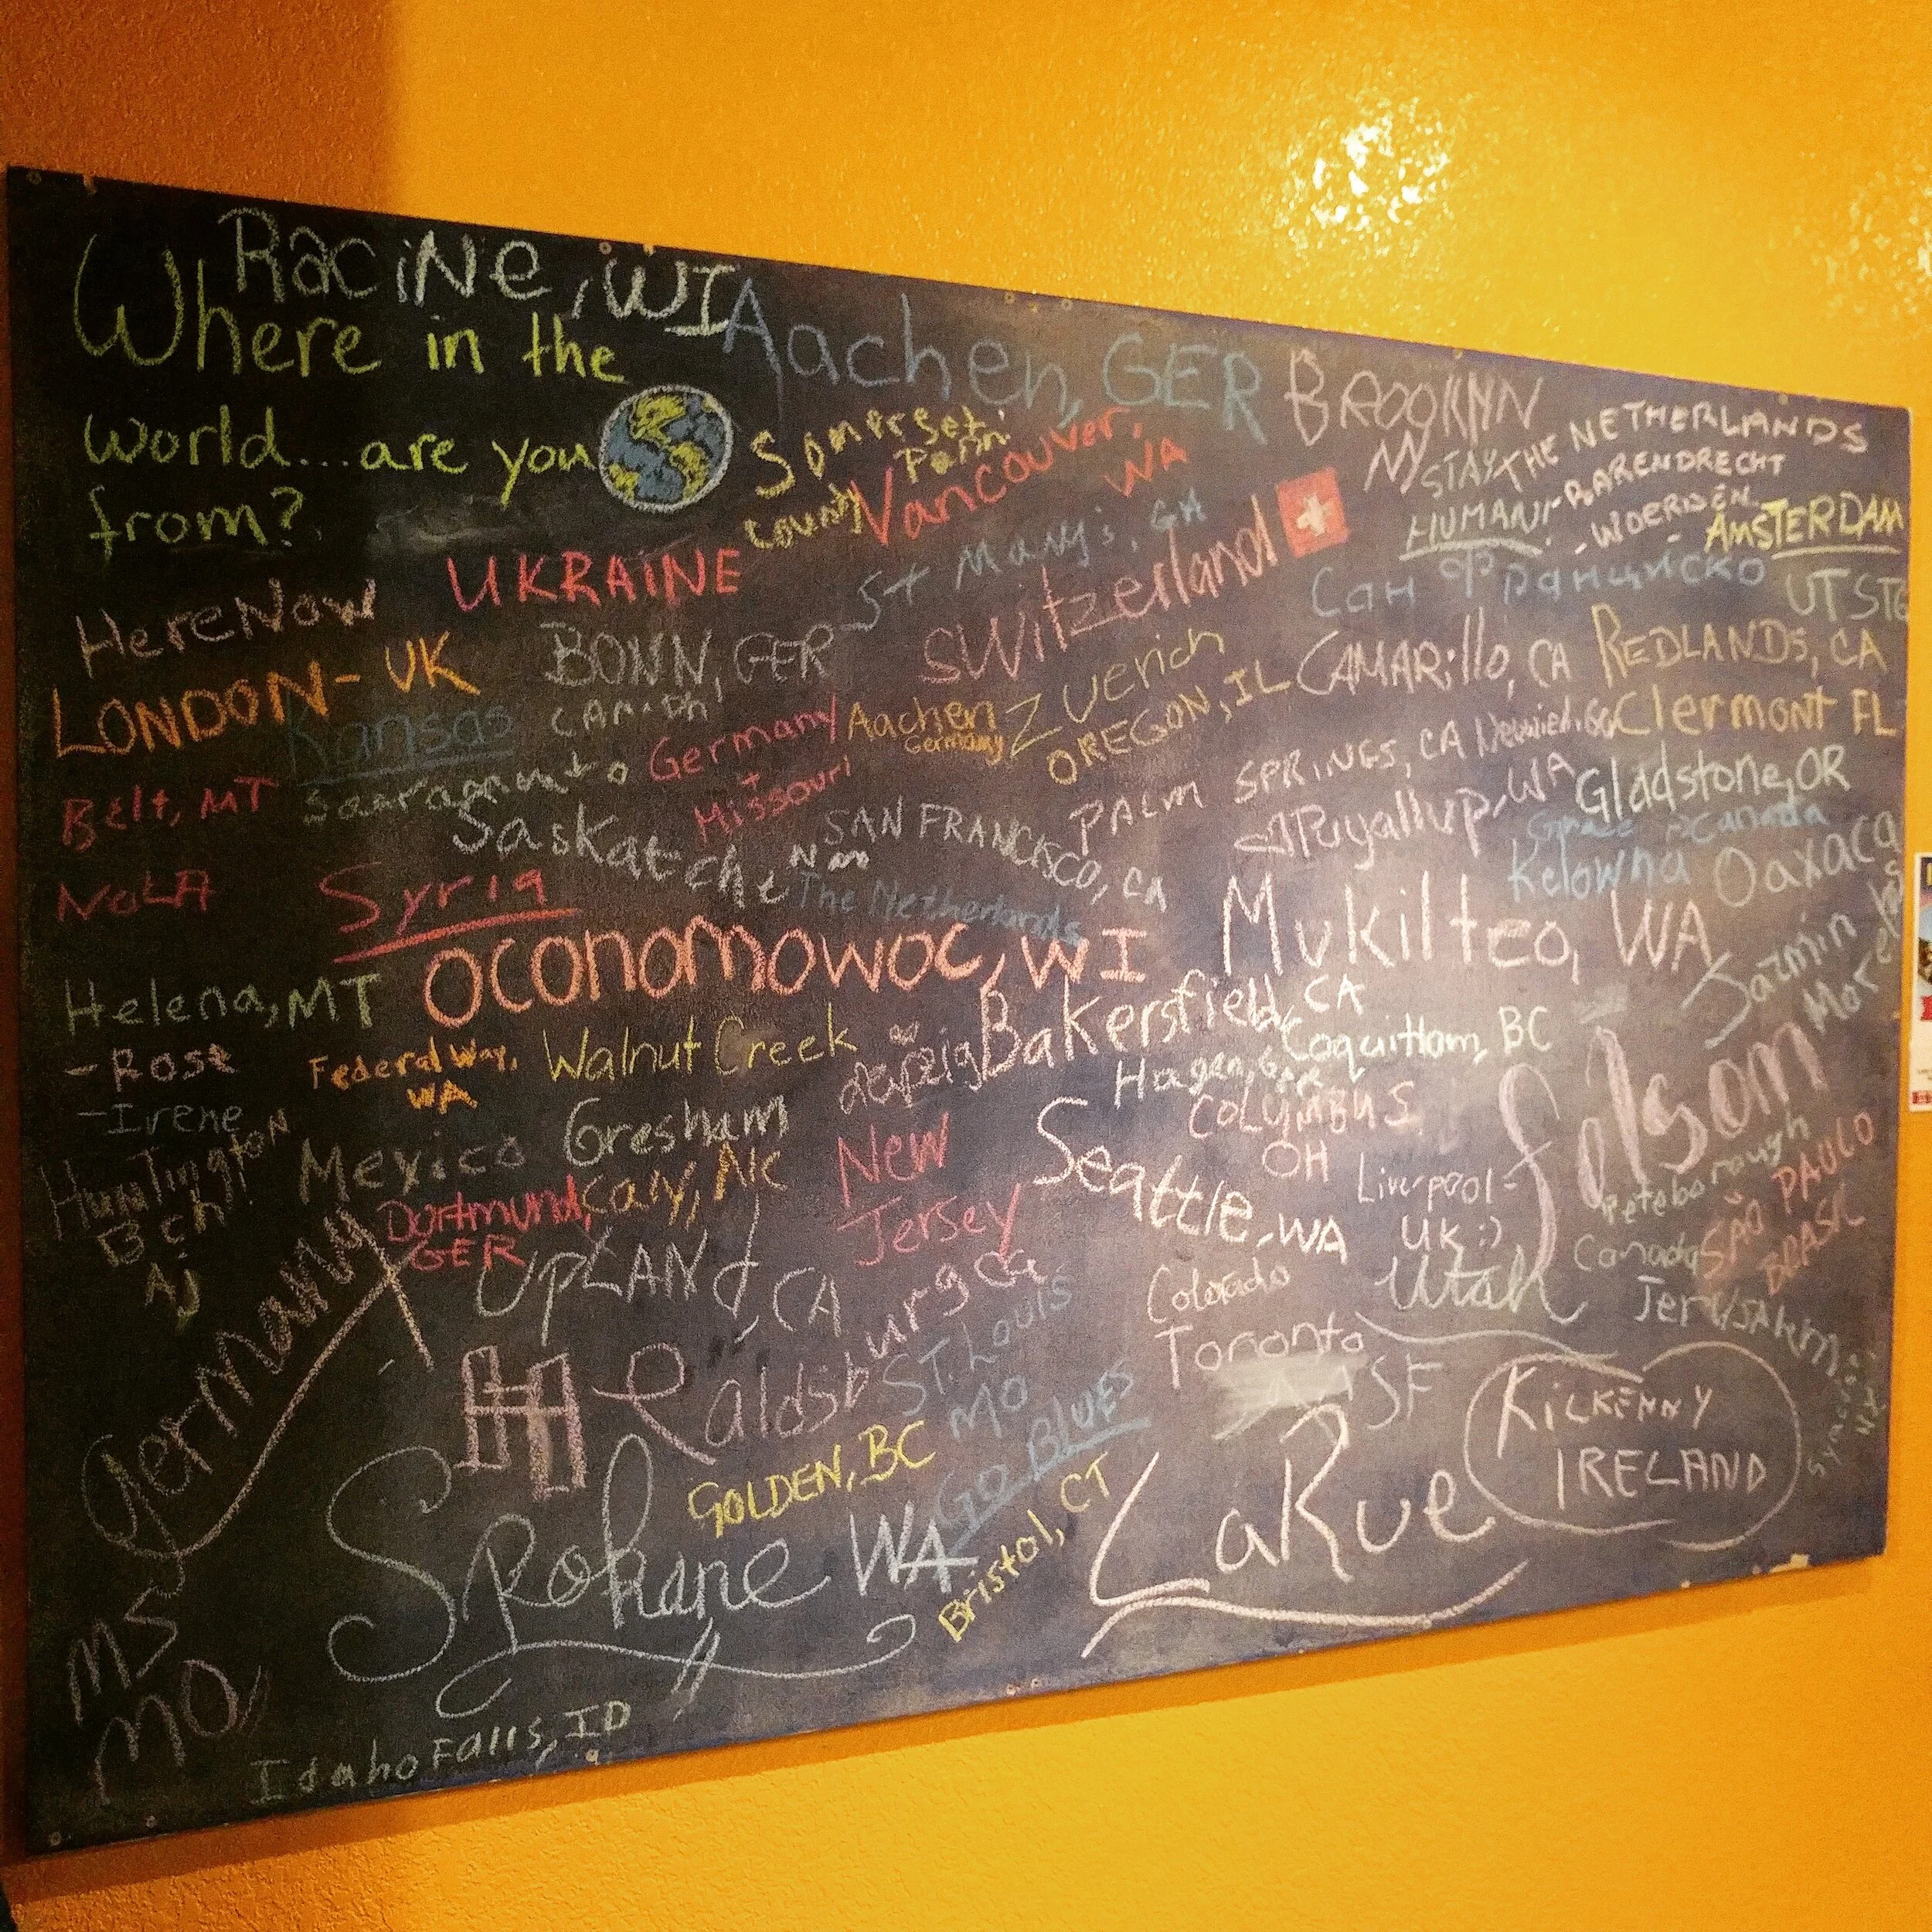 Racine, WI
Where in the
world...are you
from?
Aachen, GER
BROOKLYN
NY
Somerset
County
Penn
Vancouver,
WA
STAY
HUMAN!
THE NETHERLANDS
- BARENDRECHT
- WOERDEN
AMSTERDAM
UKRAINE
St Mary's, GA
Switzerland
Сан Франциско
HereNow
LONDON - UK
BONN, GER
Zuerich
CAMARillo, CA
REDLANDS, CA
Kansas
Germany
+
Missouri
Aachen
Germany
OREGON, IL
Clermont FL
Belt, MT
PALM SPRINGS, CA
Puyallup, WA
Gladstone, OR
SAN FRANCISCO, CA
Canada
Kelowna
Oaxaca
NOLA
Syria
The Netherlands
OCONOMOWOC, WI
Mukilteo, WA
Jazmin
Helena, MT
- Rose
- Irene
Federal Way,
WA
Walnut Creek
Leipzig
Bakersfield, CA
Hagen, GER
Coquitlam, BC
Folsom
Huntington
Bch
AJ
Mexico
Gresham
Dortmund,
GER
Cary, NC
New
Jersey
Seattle, WA
COLUMBUS
OH
Liverpool -
UK :)
Peterborough
Canada
SÃO PAULO
BRASIL
Germany
UPLAND, CA
Colorado
Utah
JERUSALEM
Toronto
SF
ST. Louis
MO
GO BLUES
GOLDEN, BC
KiLKENNY
IRELAND
Spokane WA
Bristol, CT
LaRue
MS
MO
Idaho Falls, ID